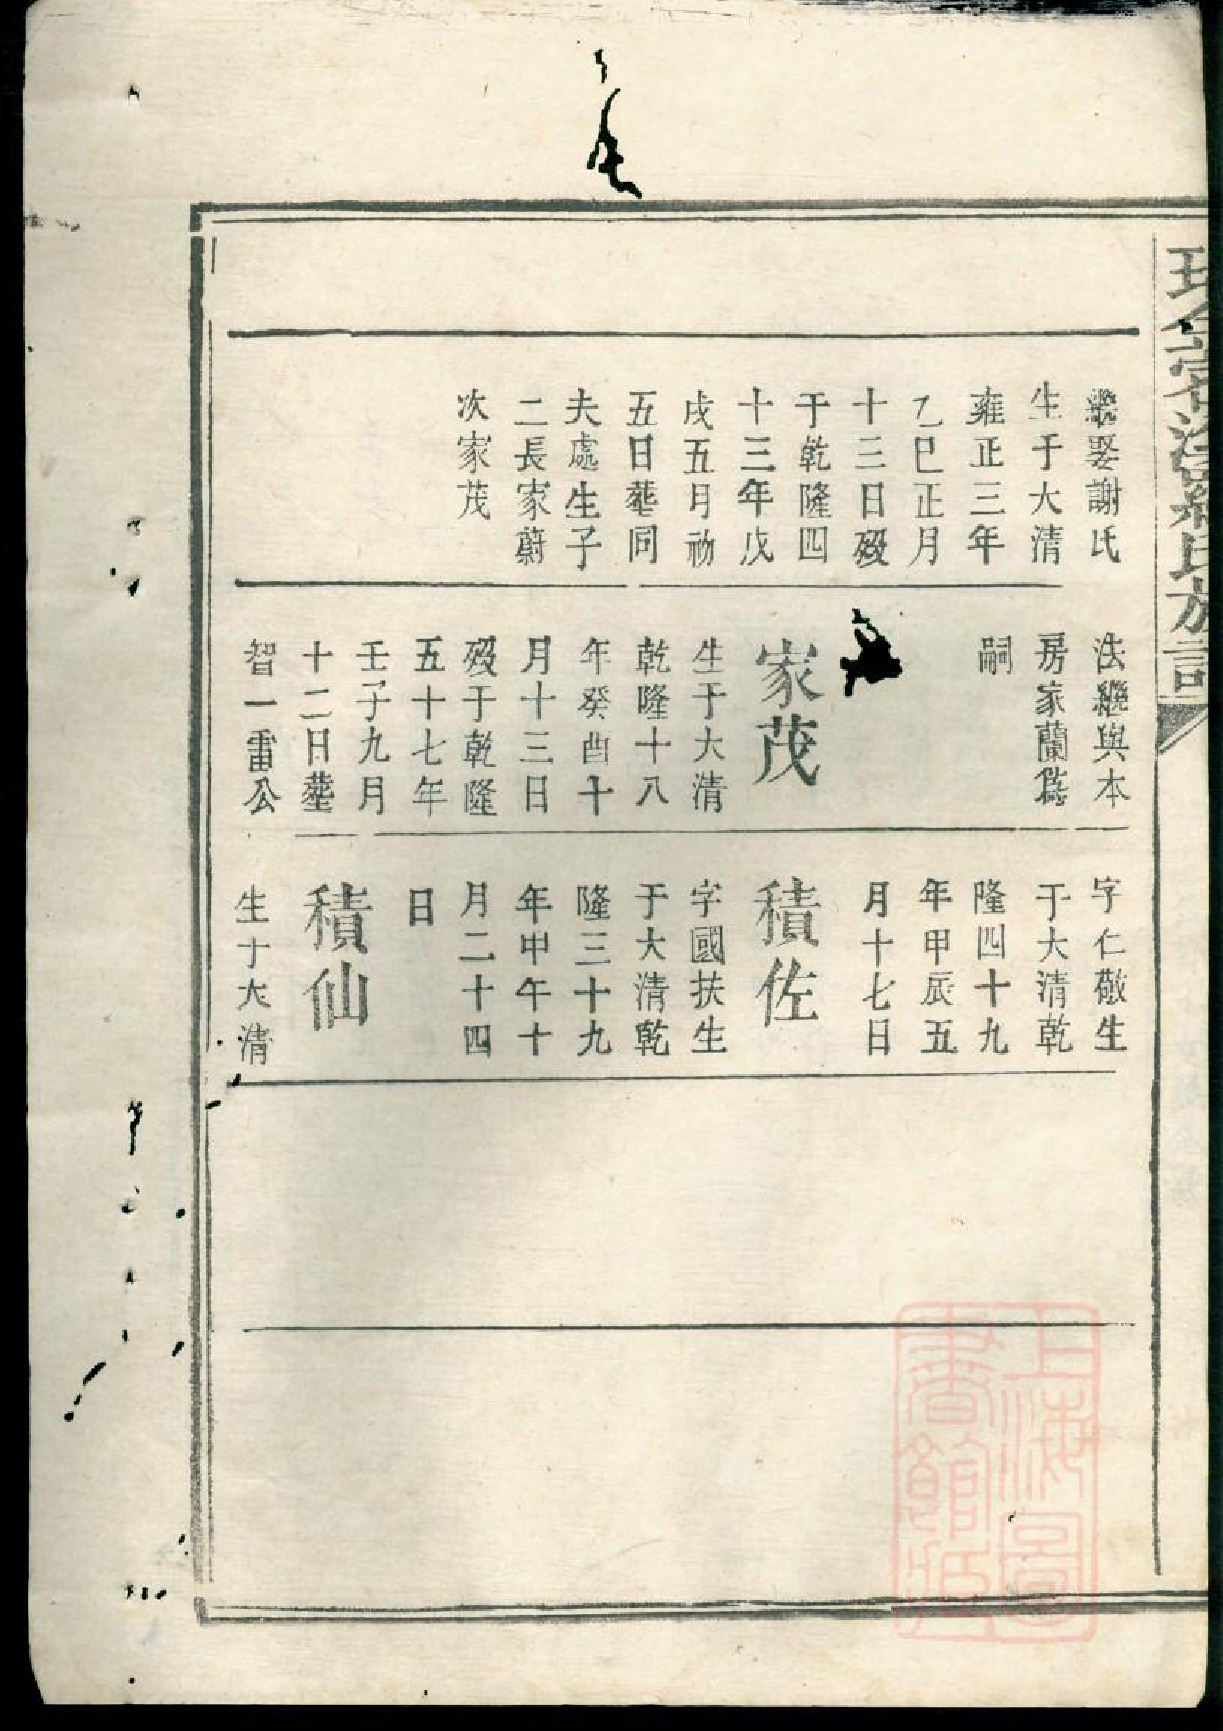 繼娶謝氏
生于大清
雍正三年
乙巳正月
十三日歿
于乾隆四
十三年戊
戌五月初
五日塟同
夫處生子
二長家蔚
次家茂
法繼與本
房家蘭爲
嗣
家茂
生于大清
乾隆十八
年癸酉十
月十三日
歿于乾隆
五十七年
壬子九月
十二日塟
智一雷公
字仁敬生
于大清乾
隆四十九
年甲辰五
月十七日
積佐
字國扶生
于大清乾
隆三十九
年甲午十
月二十四
日
積仙
生于大清
氏族
上海圖
書館藏